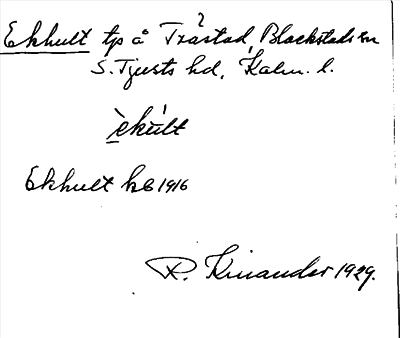 ?
Ekhult tp å Tråstad, Blackstads sn
S. Tjusts hd, Kalm. l.
èkúlt
Ekhult hC 1916
R. Kinander 1929.